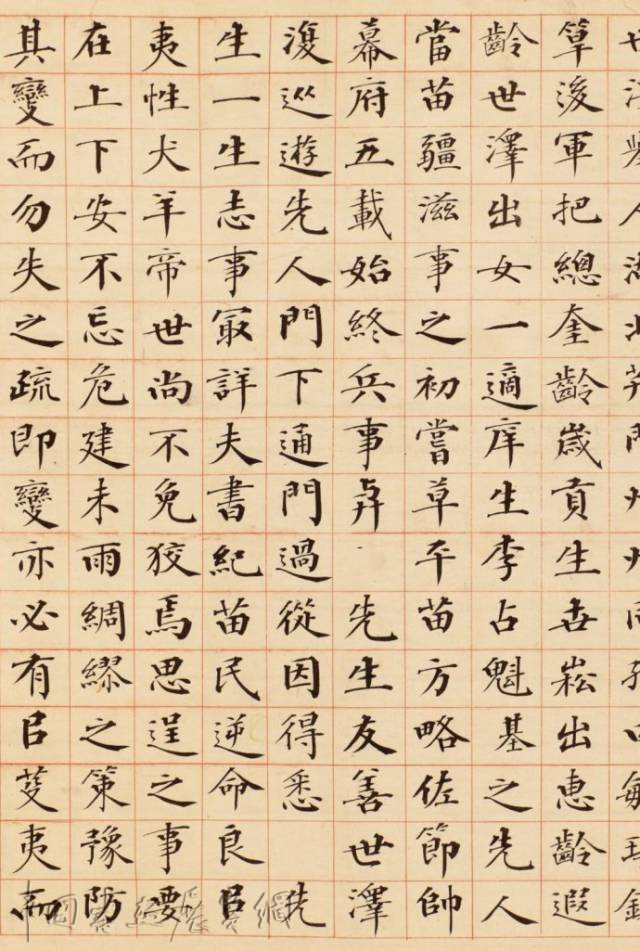 筸後軍把總奎齡歲貢生世崧出惠齡遐
齡世澤出女一適庠生李占魁基之先人
當苗疆滋事之初嘗草平苗方略佐節帥
幕府五載始終兵事 先生友善世澤
復巡遊先人門下通門過從因得悉 先
生一生志事冣詳夫書紀苗民逆命良㠯
夷性犬羊帝世尚不免狡焉思逞之事要
在上下安不忘危建未雨綢繆之策豫防
其變而勿失之疏即變亦必有㠯芟夷而